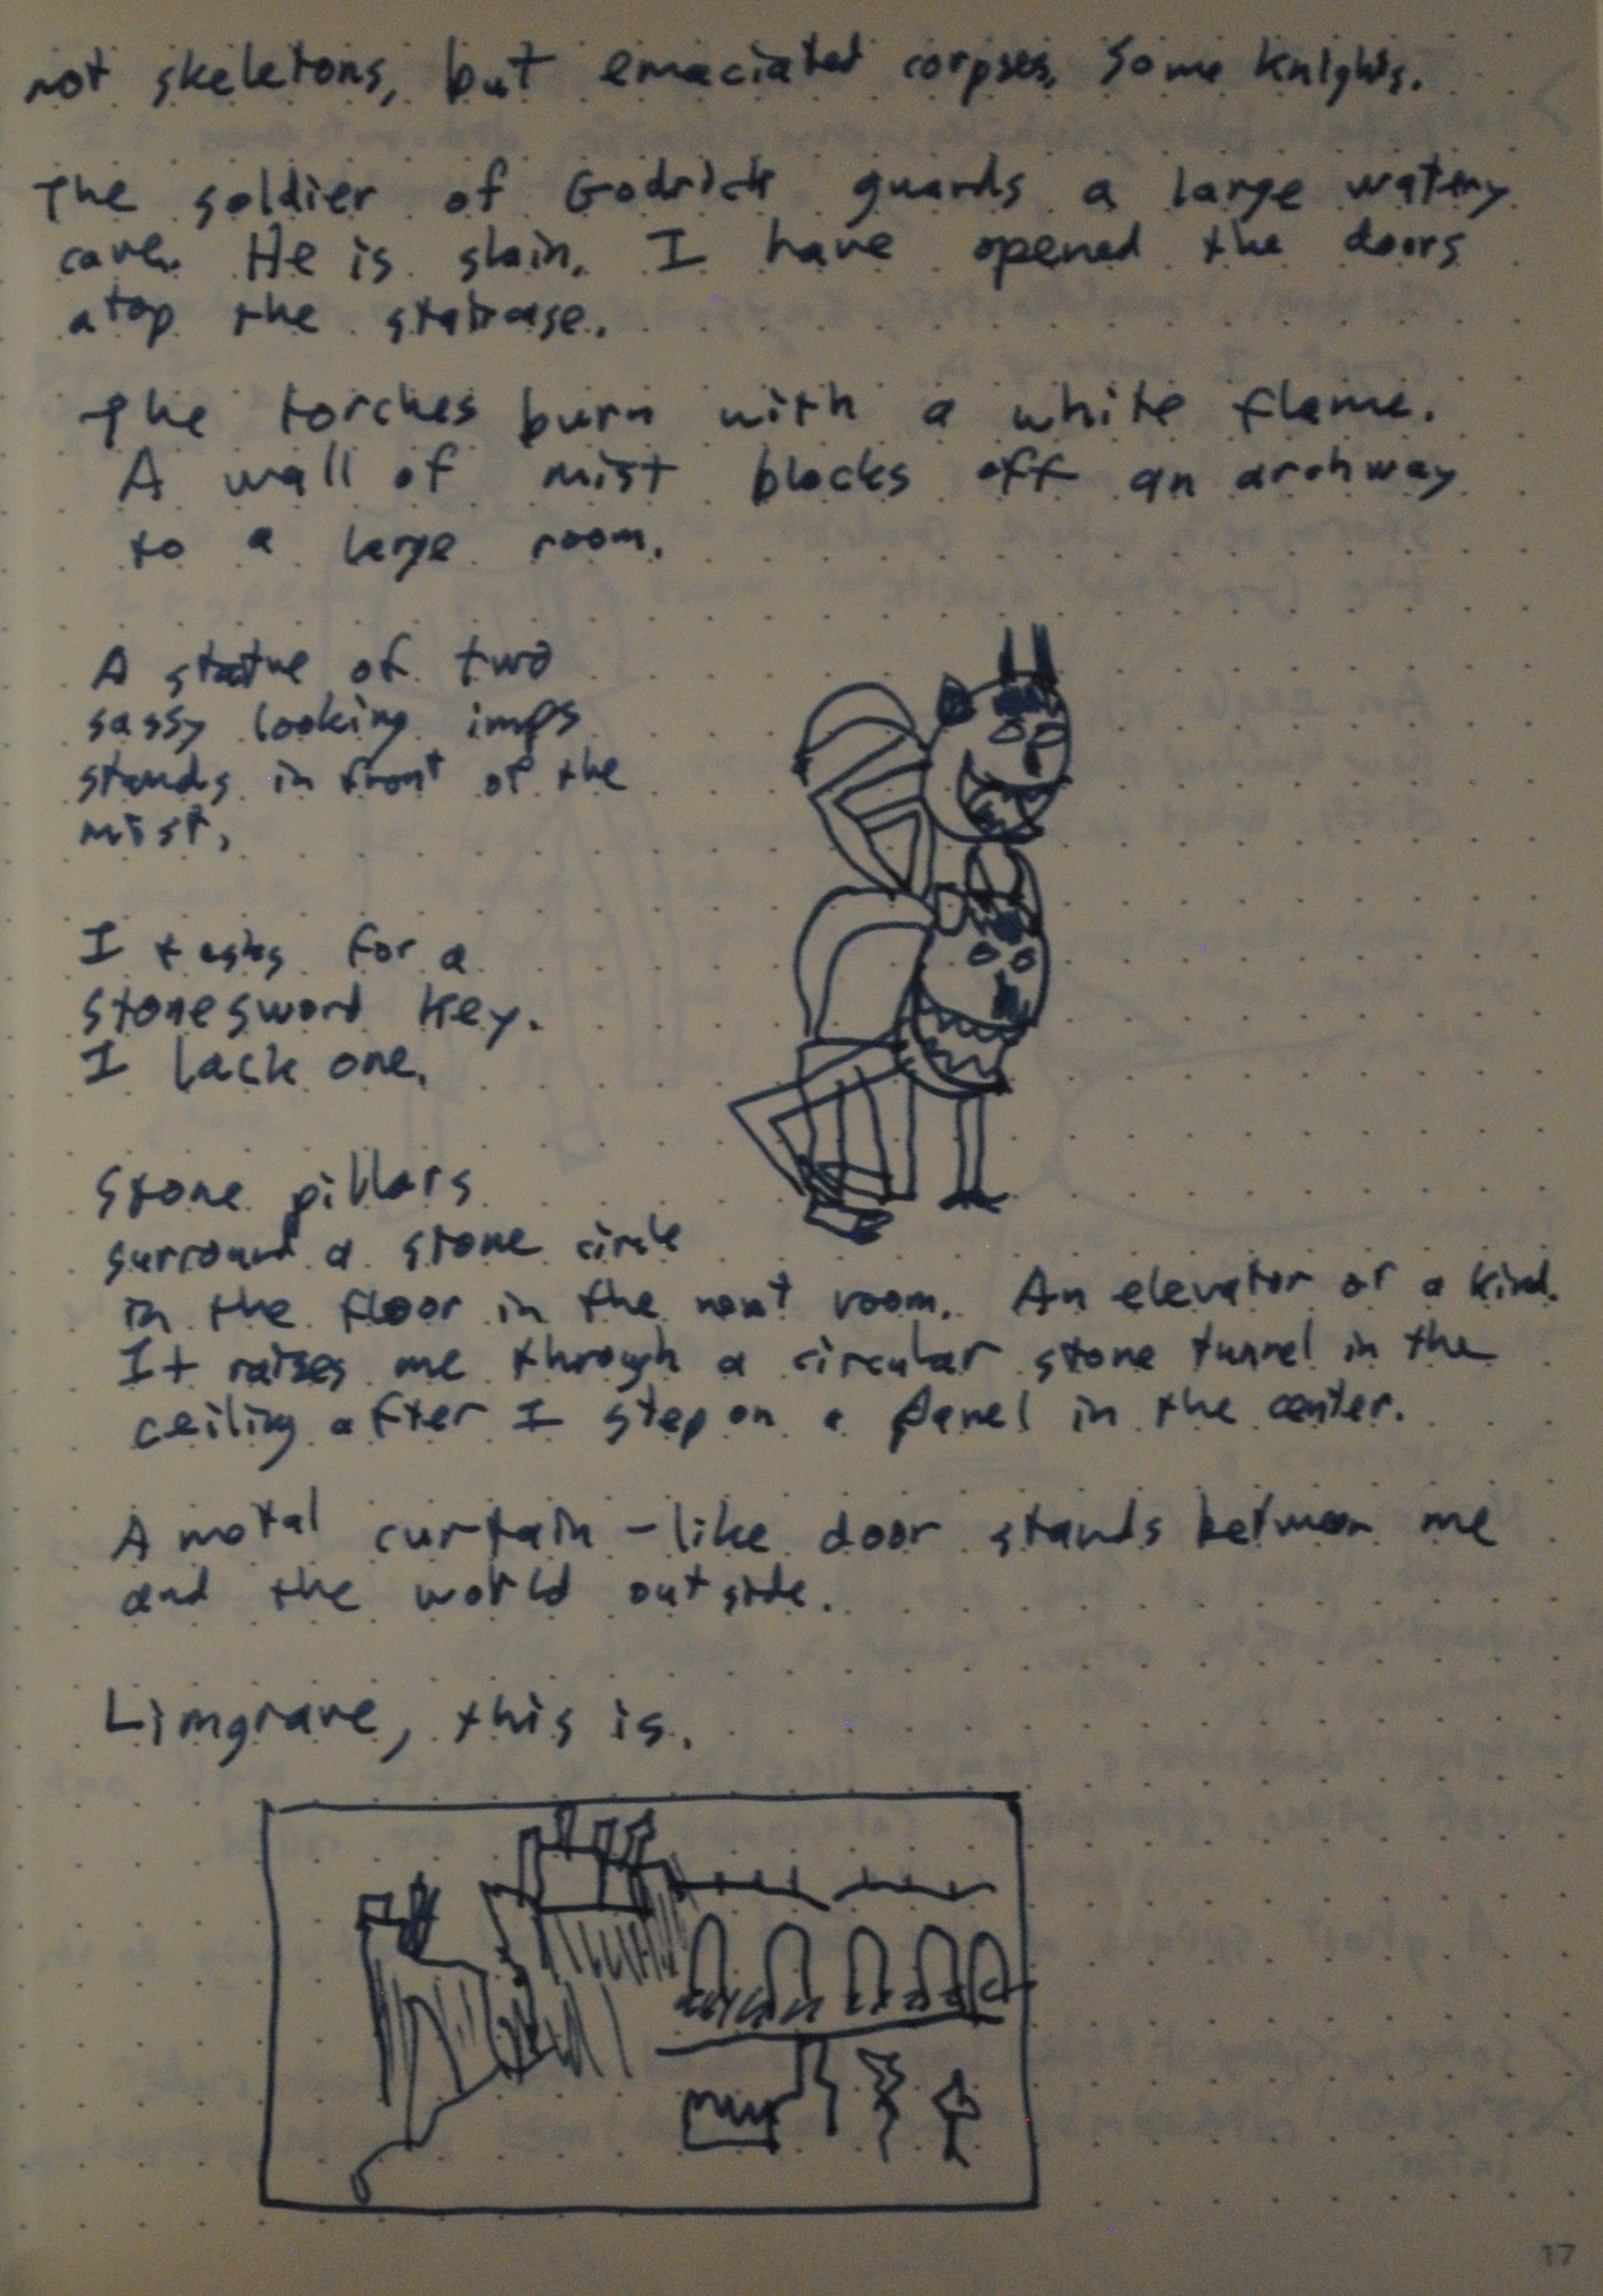 not skeletons, but emaciated corpses. Some knights.
The soldier of Godrick guards a large watery
cave. He is slain. I have opened the doors
atop the staircase.
The torches burn with a white flame.
A wall of mist blocks off an archway
to a large room.
A statue of two
sassy looking imps
stands in front of the
mist.
I tasks for a
stonesword key.
I lack one.
Stone pillars
surround a stone circle
in the floor in the next room. An elevator of a kind.
It raises me through a circular stone tunnel in the
ceiling after I step on a panel in the center.
A metal curtain-like door stands between me
and the world outside.
Limgrave, this is.
17